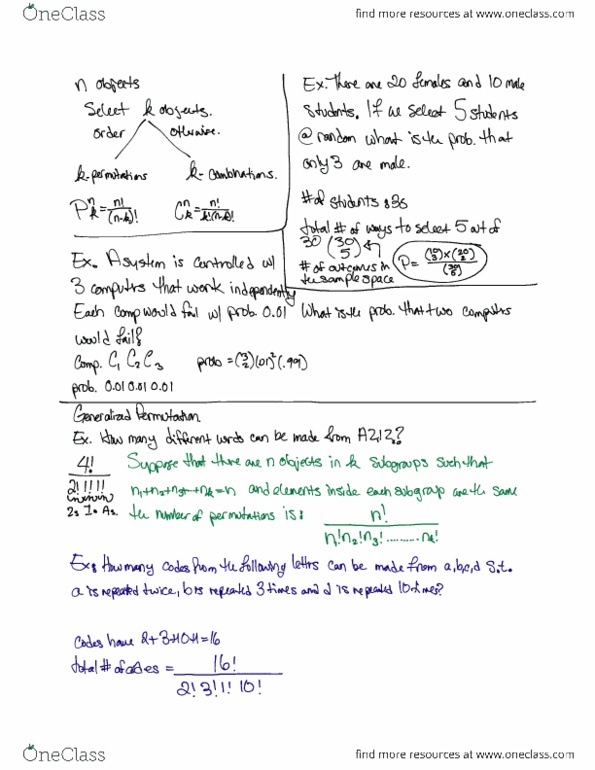 OneClass
find more resources at www.oneclass.com
n objects
Select k objects.
order otherwise.
k-permutations k-combinations.
P^n_k = n!/(n-k)! C^n_k = n!/k!(n-k)!
Ex. There are 20 females and 10 male
students. If we select 5 students
@ random what is the prob. that
only 3 are male.
# of students: 30
total # of ways to select 5 out of
30 (30 5)
# of outcomes in
the sample space
P = (10 3)×(20 2)/(30 5)
Ex. A system is controlled w/
3 computers that work independently
Each comp would fail w/ prob 0.01 What is the prob. that two computers
would fail?
Comp. C1 C2 C3 prob = (3 2)(.01)^2(.99)
prob. 0.01 0.01 0.01
Generalized Permutation
Ex. How many different words can be made from A2,I2,?
4!
2! 1! 1!
2s I. As.
Suppose that there are n objects in k subgroups such that
n1+n2+n3+ +nk=n and elements inside each subgroup are the same
the number of permutations is: n!/n1!n2!n3!..........nk!
Ex: How many codes from the following letters can be made from a,b,c,d s.t.
a is repeated twice, b is repeated 3 times and d is repeated 10 times?
Codes have 2+3+10+1=16
total # of codes = 16!
2! 3! 1! 10!
OneClass
find more resources at www.oneclass.com